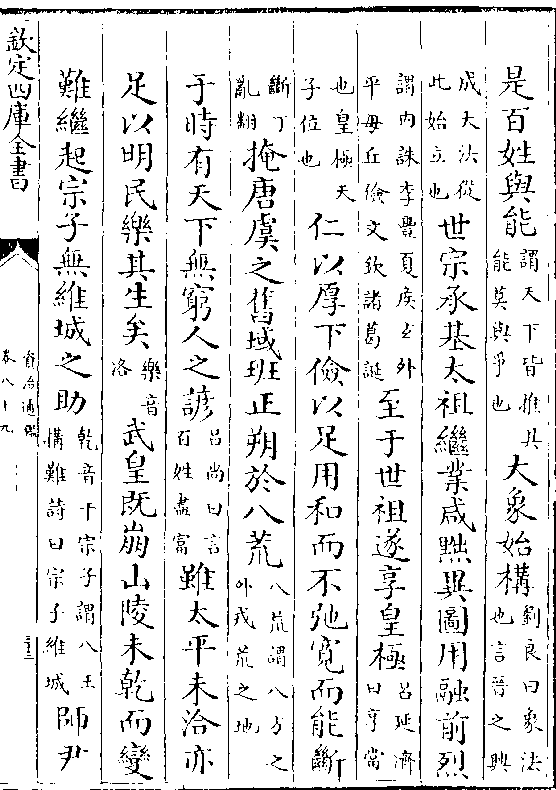 是百姓與能謂天下皆推其能莫與爭也大象始構劉良曰象法也言晉之興
成大法從此始立也世宗承基太祖繼業咸黜異圖用融前烈
謂内誅李豐夏侯𤣥外平毋丘儉文欽諸葛誕至于世祖遂享皇極吕延濟曰享當
也皇極天子位也仁以厚下儉以足用和而不弛寛而能斷
斷丁亂翻掩唐虞之舊域班正朔於八荒八荒謂八方之外戎荒之地
于時有天下無窮人之諺吕尚曰言百姓盡富雖太平未洽亦
足以明民樂其生矣樂音洛武皇既崩山陵未乾而變
難繼起宗子無維城之助乾音干宗子謂八王搆難詩曰宗子維城師尹
欽定四庫全書
資治通鑑
卷八十九